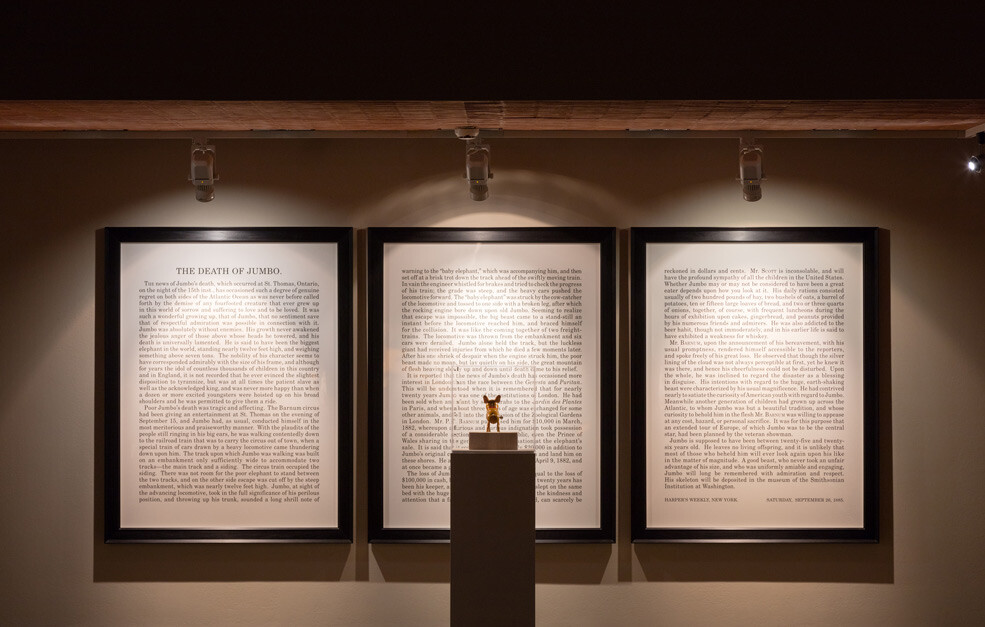 THE DEATH OF JUMBO.
The news of Jumbo's death, which occurred at St. Thomas, Ontario,
on the night of the 15th inst., has occasioned such a degree of genuine
regret on both sides of the Atlantic Ocean as was never before called
forth by the demise of any fourfooted creature that ever grew up
in this world of sorrow and suffering to love and to be loved. It was
such a wonderful growing up, that of Jumbo, that no sentiment save
that of respectful admiration was possible in connection with it.
Jumbo was absolutely without enemies. His growth never awakened
the jealous anger of those above whose heads he towered, and his
death is universally lamented. He is said to have been the biggest
elephant in the world, standing nearly twelve feet high, and weighing
something above seven tons. The nobility of his character seems to
have corresponded admirably with the size of his frame, and although
for years the idol of countless thousands of children in this country
and in England, it is not recorded that he ever evinced the slightest
disposition to tyrannize, but was at all times the patient slave as
well as the acknowledged king, and was never more happy than when
a dozen or more excited youngsters were hoisted up on his broad
shoulders and he was permitted to give them a ride.
Poor Jumbo's death was tragic and affecting. The Barnum circus
had been giving an entertainment at St. Thomas on the evening of
September 15, and Jumbo had, as usual, conducted himself in the
most meritorious and praiseworthy manner. With the plaudits of the
people still ringing in his big ears, he was walking contentedly down
to the railroad train that was to carry the circus out of town, when a
special train of cars drawn by a heavy locomotive came thundering
down upon him. The track upon which Jumbo was walking was built
on an embankment only sufficiently wide to accommodate two
tracks—the main track and a siding. The circus train occupied the
siding. There was not room for the poor elephant to stand between
the two tracks, and on the other side escape was cut off by the steep
embankment, which was nearly twelve feet high. Jumbo, at sight of
the advancing locomotive, took in the full significance of his perilous
position, and throwing up his trunk, sounded a long shrill note of
warning to the "baby elephant," which was accompanying him, and then
set off at a brisk trot down the track ahead of the swiftly moving train.
In vain the engineer whistled for brakes and tried to check the progress
of his train; the grade was steep, and the heavy cars pushed the
locomotive forward. The "baby elephant" was struck by the cow-catcher
of the locomotive and tossed to one side with a broken leg, after which
the rocking engine bore down upon old Jumbo. Seeming to realize
that escape was impossible, the big beast came to a stand-still an
instant before the locomotive reached him, and braced himself
for the collision. It was like the coming together of two freight-
trains. The locomotive was thrown from the embankment and six
cars were derailed. Jumbo alone held the track, but the luckless
giant had received injuries from which he died a few moments later.
After his one shriek of despair when the engine struck him, the poor
beast made no moan, but lay quietly on his side, the great mountain
of flesh heaving up and down until death came to his relief.
It is reported that the news of Jumbo's death has occasioned more
interest in London than the race between the Genesta and Puritan.
This will be understood when it is remembered that for nearly
twenty years Jumbo was one institutions of London. He had
been sold when an by to the Jardin des Plantes
in Paris, and when about three of age was exchanged for some
other animals, and into the of the Zoological Gardens
in London. Mr. P. T. Barnum him for $10,000 in March,
1882, whereupon and indignation took possession
of a considerable upon the Prince of
Wales sharing in a at the elephant's
sale. It is said in addition to
Jumbo's original and land him on
these shores. He April 9, 1882, and
at once became a
The loss of Jum equal to the loss of
$100,000 in cash, twenty years has
been his keeper, slept on the same
bed with the huge the kindness and
attention that a can scarcely be
reckoned in dollars and cents. Mr. Scott is inconsolable, and will
have the profound sympathy of all the children in the United States.
Whether Jumbo may or may not be considered to have been a great
eater depends upon how you look at it. His daily rations consisted
usually of two hundred pounds of hay, two bushels of oats, a barrel of
potatoes, ten or fifteen large loaves of bread, and two or three quarts
of onions, together, of course, with frequent luncheon during the
hours of exhibition upon cakes, gingerbread, and peanuts provided
by his numerous friends and admirers. He was also addicted to the
beer habit, though not immoderately; and in his earlier life is said to
have exhibited a weakness for whiskey.
Mr. Barnum, upon the announcement of his bereavement, with his
usual promptness, rendered himself accessible to the reporters,
and spoke freely of his great loss. He observed that though the silver
lining of the cloud was not always perceptible at first, yet he knew it
was there, and hence his cheerfulness could not be disturbed. Upon
the whole, he was inclined to regard the disaster as a blessing
in disguise. His intentions with regard to the huge, earth-shaking
beast were characterized by his usual magnificence. He had contrived
nearly to satiate the curiosity of American youth with regard to Jumbo.
Meanwhile another generation of children had grown up across the
Atlantic, to whom Jumbo was but a beautiful tradition, and whose
curiosity to behold him in the flesh Mr. Barnum was willing to appease
at any cost, hazard, or personal sacrifice. It was for this purpose that
an extended tour of Europe, of which Jumbo was to be the central
star, had been planned by the veteran showman.
Jumbo is supposed to have been between twenty-five and twenty-
six years old. He leaves no living offspring, and it is unlikely that
most of those who beheld him will ever look again upon his like
in the matter of magnitude. A good beast, who never took an unfair
advantage of his size, and who was uniformly amiable and engaging,
Jumbo will long be remembered with admiration and respect.
His skeleton will be deposited in the museum of the Smithsonian
Institution at Washington.
HARPER'S WEEKLY, NEW YORK. SATURDAY, SEPTEMBER 26, 1885.